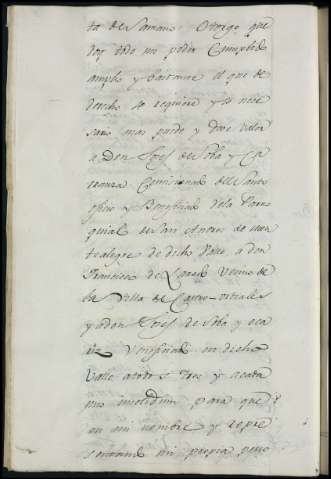 to de Samano: Otorgo que
doy todo mi poder Cumplido
amplo y bastante el que de
derecho se requiere y es nece
sario mas puede y deve valer
a Don de Soba y
Comisionado del Santo
oficio y Beneficiado de la Parro
quial de San Andres de
tealegre de dicho Valle, a don
Francisco de Laredo Vecino de
la Villa de Castro-urdiales
y a don de Soba y aca
en dicho
Valle a todos tres y a cada
uno insolidum para que
en mi nombre y repre
sentando mi propia perso